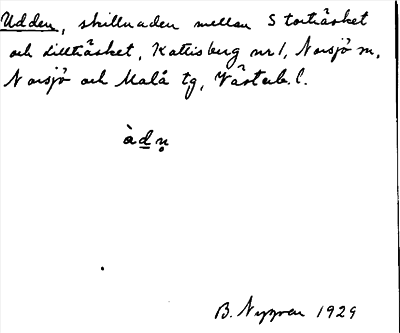 Udden, skillnaden mellan Storträsket
och Lillträsket, Kattisberg nr 1, Norsjö sn,
Norsjö och Malå tg, Västerb. l.
àdn̥
B. Nygren 1929